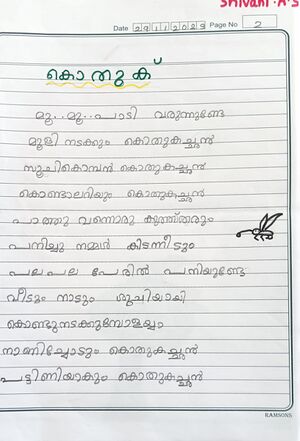 Shivani.A.S
Date 29 11 2025 Page No 2
കൊതുക്
മൂ..മൂ..പാടി വരുന്നുണ്ടേ
മൂളി നടക്കും കൊതുകച്ഛൻ
സൂചികൊമ്പൻ കൊതുകച്ഛൻ
കൊണ്ടാലറിയും കൊതുകച്ഛൻ
പാത്തു വന്നൊരു കുത്ത്തരും
പനിച്ചു നമ്മൾ കിടന്നീടും
പലപല പേരിൽ പനിയുണ്ടേ
വീടും നാടും ശുചിയായി
കൊണ്ടുനടക്കുമ്പോളയ്യാ
നാണിച്ചോടും കൊതുകച്ഛൻ
പട്ടിണിയാകും കൊതുകച്ഛൻ
RAMSONS